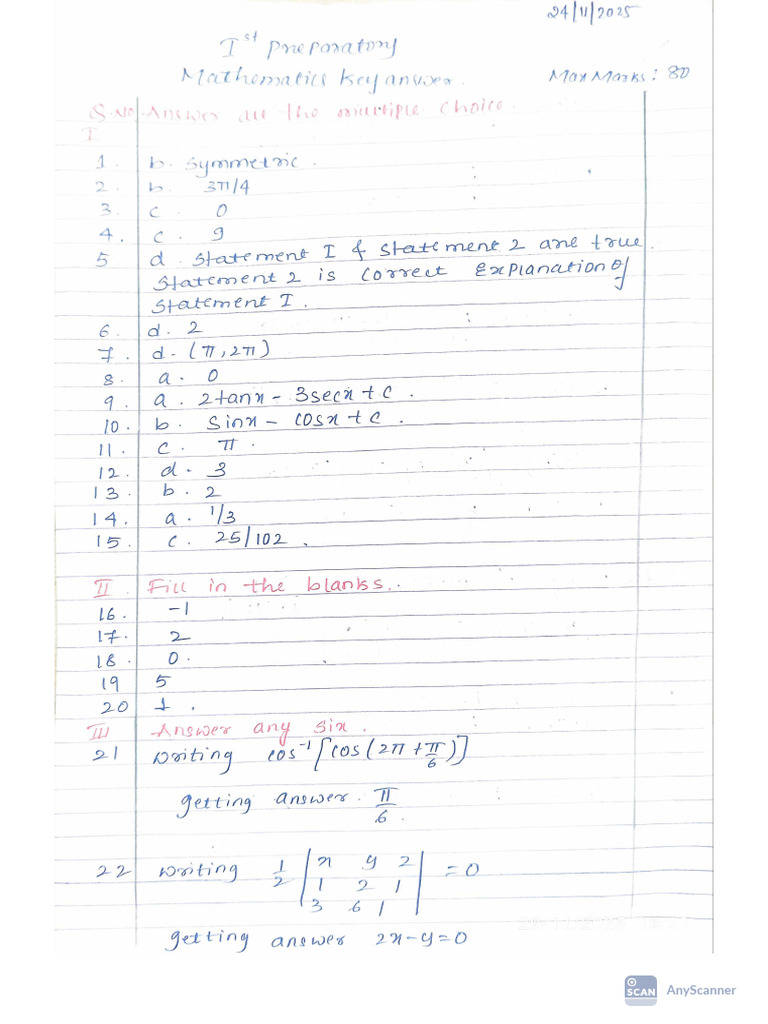 24/11/2025
Ist preparatory
Mathematics Key answer. Max Marks: 80
S.No Answer all the multiple choice.
I
1. b. symmetric.
2. b. 3π/4
3. c. 0
4. c. 9
5 d. statement I & statement 2 are true.
statement 2 is correct explanation of
statement I.
6. d. 2
7. d. (π, 2π)
8. a. 0
9. a. 2tanx - 3secx + c.
10. b. sinx - cosx + c.
11. c. π.
12. d. 3
13. b. 2
14. a. 1/3
15. c. 25/102.
II. Fill in the blanks.
16. -1
17. 2
18. 0.
19 5
20 1.
III Answer any six.
21 writing cos⁻¹[cos(2π + π/6)]
getting answer. π/6.
22 writing 1/2 |x y 2| = 0
|1 2 1|
|3 6 1|
getting answer 2x-y=0
SCAN AnyScanner